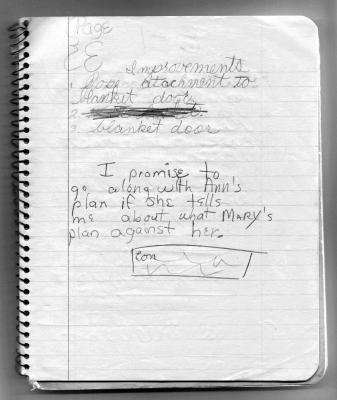 Page
Improvements
1. Door atachment to
blanket door
2.
3. blanket door
I promise to
go along with Ann's
plan if she tells
me about what MARY's
plan against her.